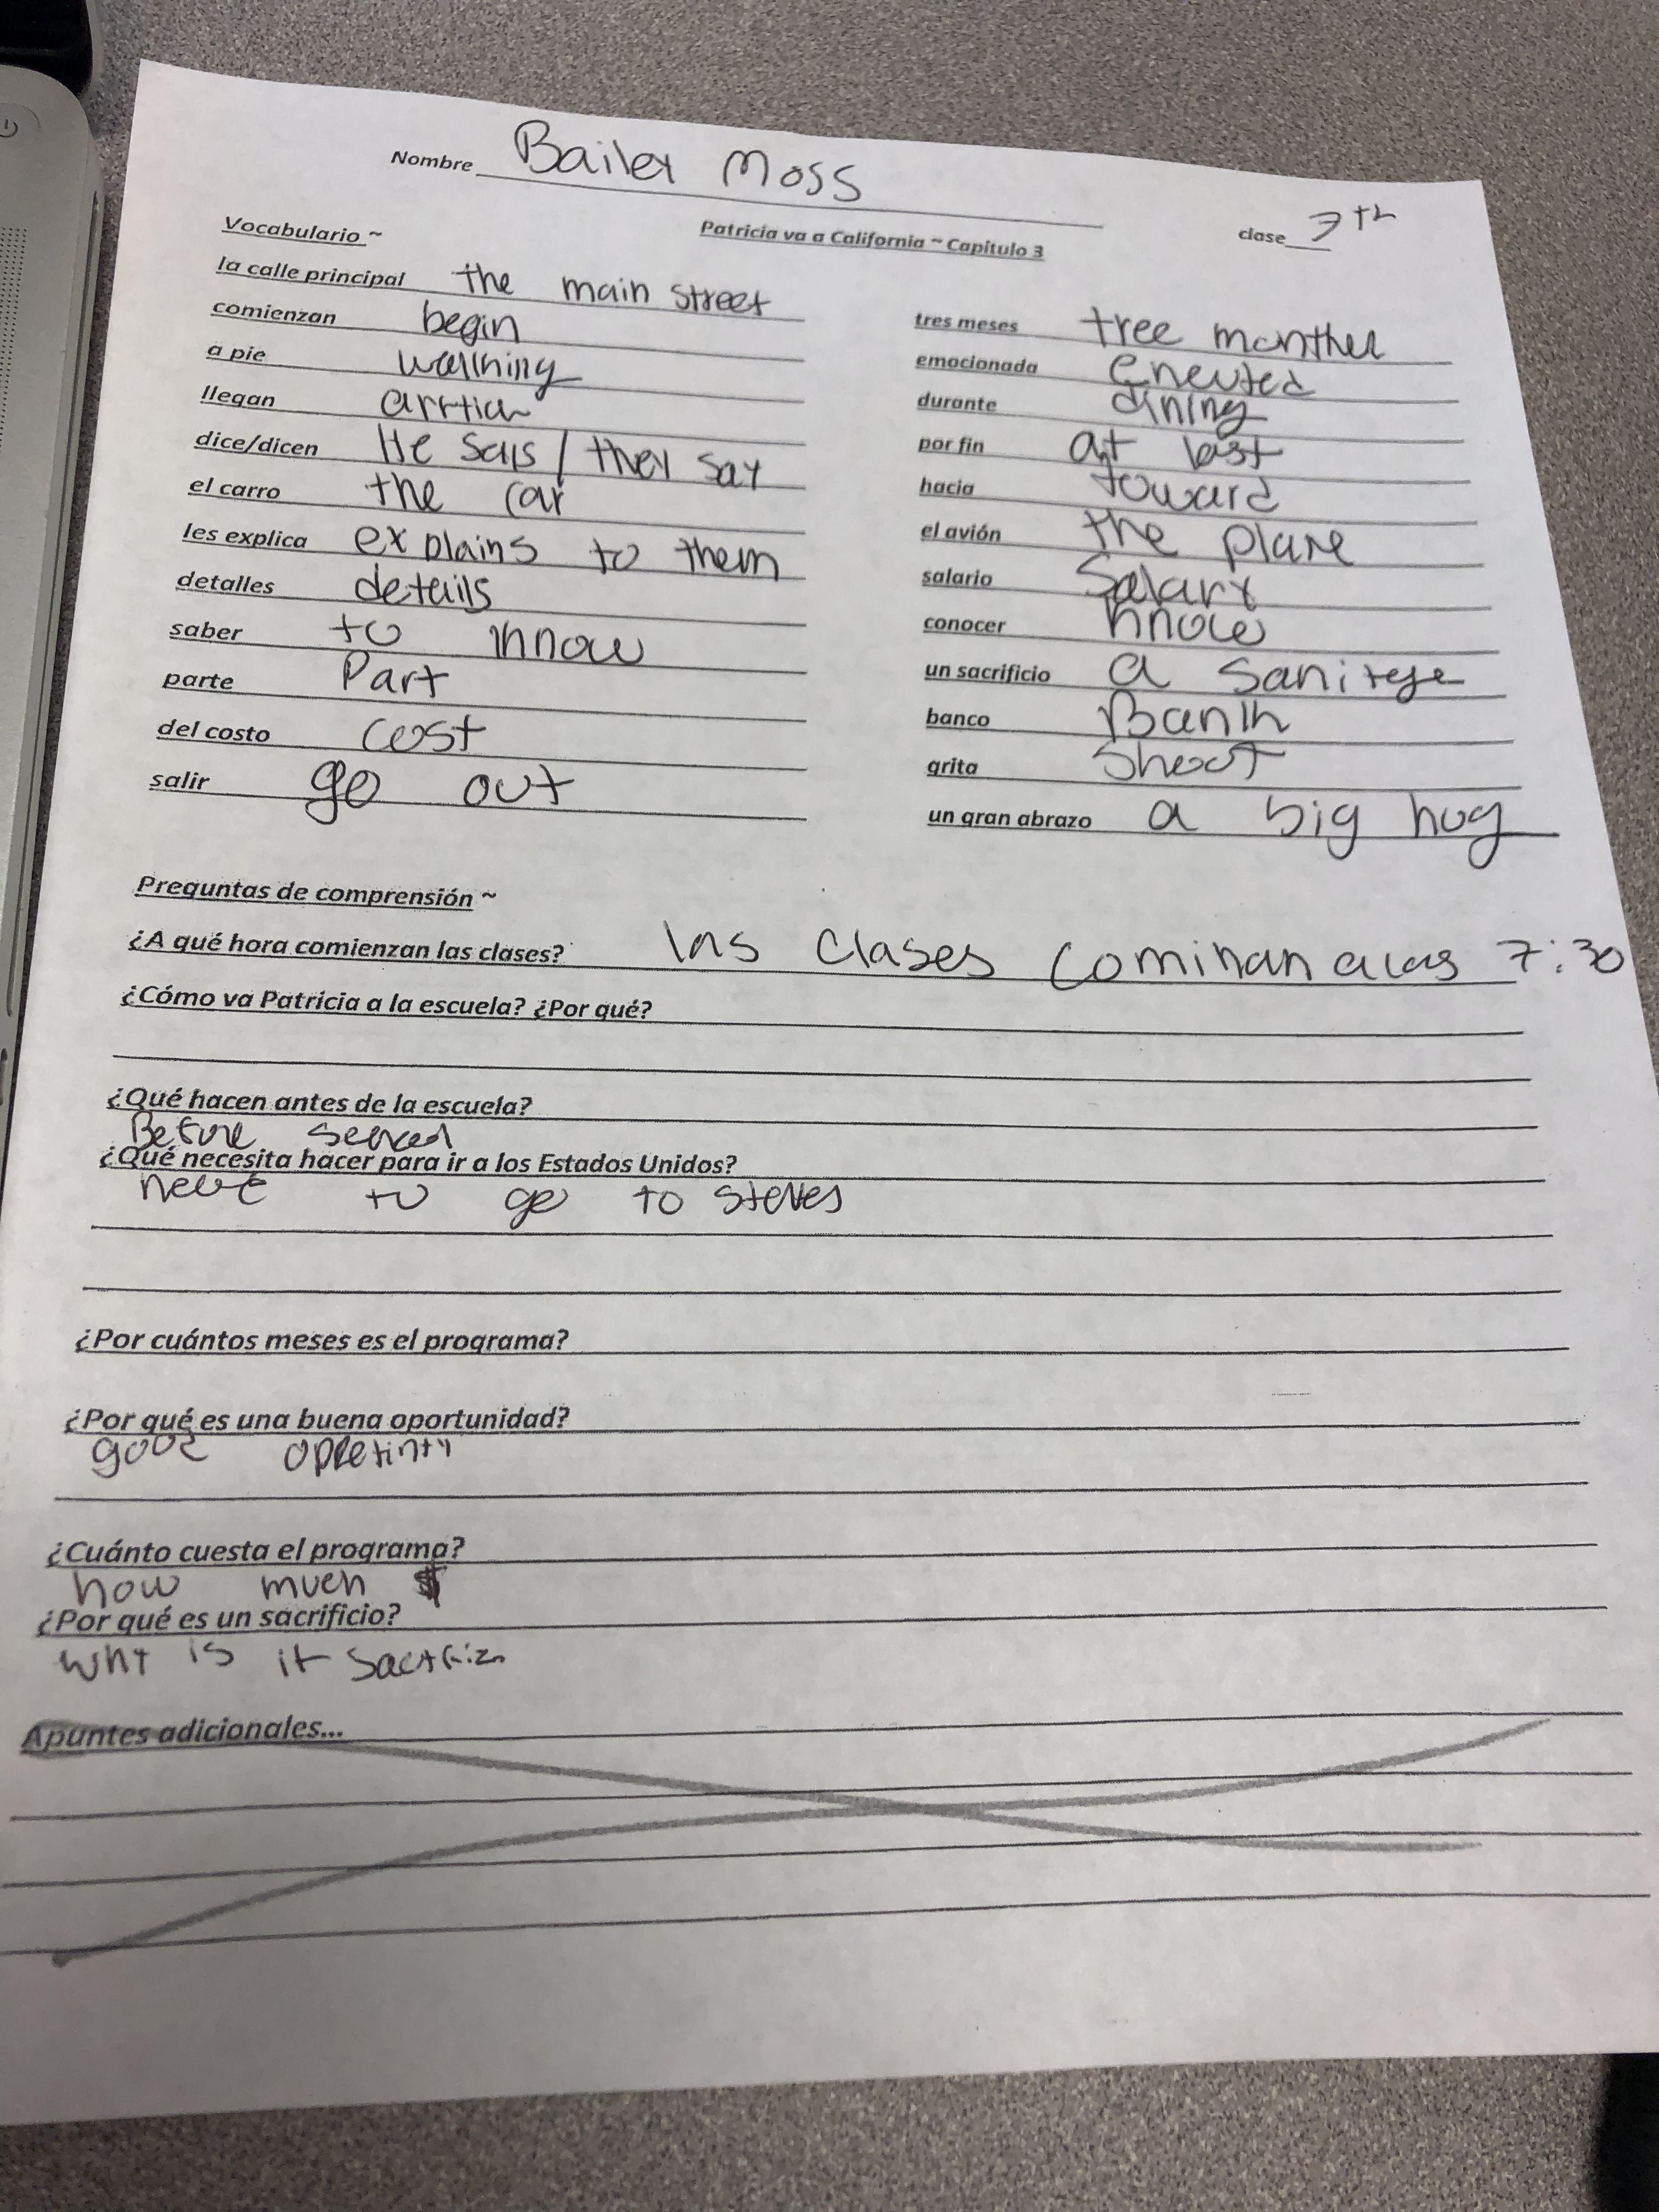 Nombre Bailey Moss
clase 7th
Vocabulario ~
Patricia va a California ~ Capitulo 3
la calle principal the main street
comienzan begin
a pie
llegan
dice/dicen He says / they say
el carro the car
les explica explains to them
detalles details
saber to know
parte Part
del costo cost
salir go out
tres meses tree
emocionada
durante
por fin at last
hacia toward
el avión the plane
salario Salary
conocer know
un sacrificio a
banco Bank
grita
un gran abrazo a big hug
Preguntas de comprensión ~
¿A qué hora comienzan las clases? las clases a las 7:30
¿Cómo va Patricia a la escuela? ¿Por qué?
¿Qué hacen antes de la escuela?
Before
¿Qué necesita hacer para ir a los Estados Unidos?
to go to
¿Por cuántos meses es el programa?
¿Por qué es una buena oportunidad?
good
¿Cuánto cuesta el programa?
how much $
¿Por qué es un sacrificio?
why is it
Apuntes adicionales...